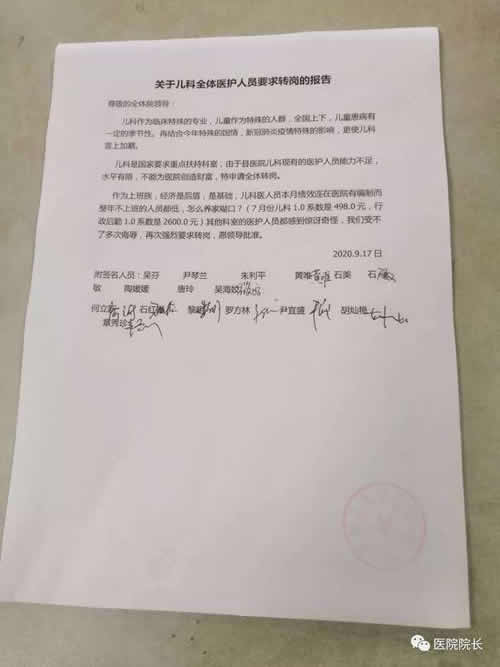 关于儿科全体医护人员要求转岗的报告
尊敬的全体院领导：
儿科作为临床特殊的专业，儿童作为特殊的人群，全国上下，儿童患病有
一定的季节性。再结合今年特殊的国情，新冠肺炎疫情特殊的影响，更使儿科
雪上加霜。
儿科是国家要求重点扶持科室，由于县医院儿科现有的医护人员能力不足，
水平有限，不能为医院创造财富，特申请全体转岗。
作为上班族，经济是后盾，是基础，儿科医人员本月绩效连在医院有编制而
整年不上班的人员都低，怎么养家糊口？（7月份儿科 1.0 系数是 498.0 元，行
政后勤 1.0 系数是 2600.0 元）其他科室的医护人员都感到惊讶奇怪，我们受不
了多次侮辱，再次强烈要求转岗，恩领导批准。
2020.9.17 日
附签名人员：吴芬 尹琴兰 朱利平 黄唯 石美 石
敏 陶媛媛 唐玲 吴海姣
何立 石红 黎 罗方林 尹宜盛 胡灿艳
章秀珍
医院院长